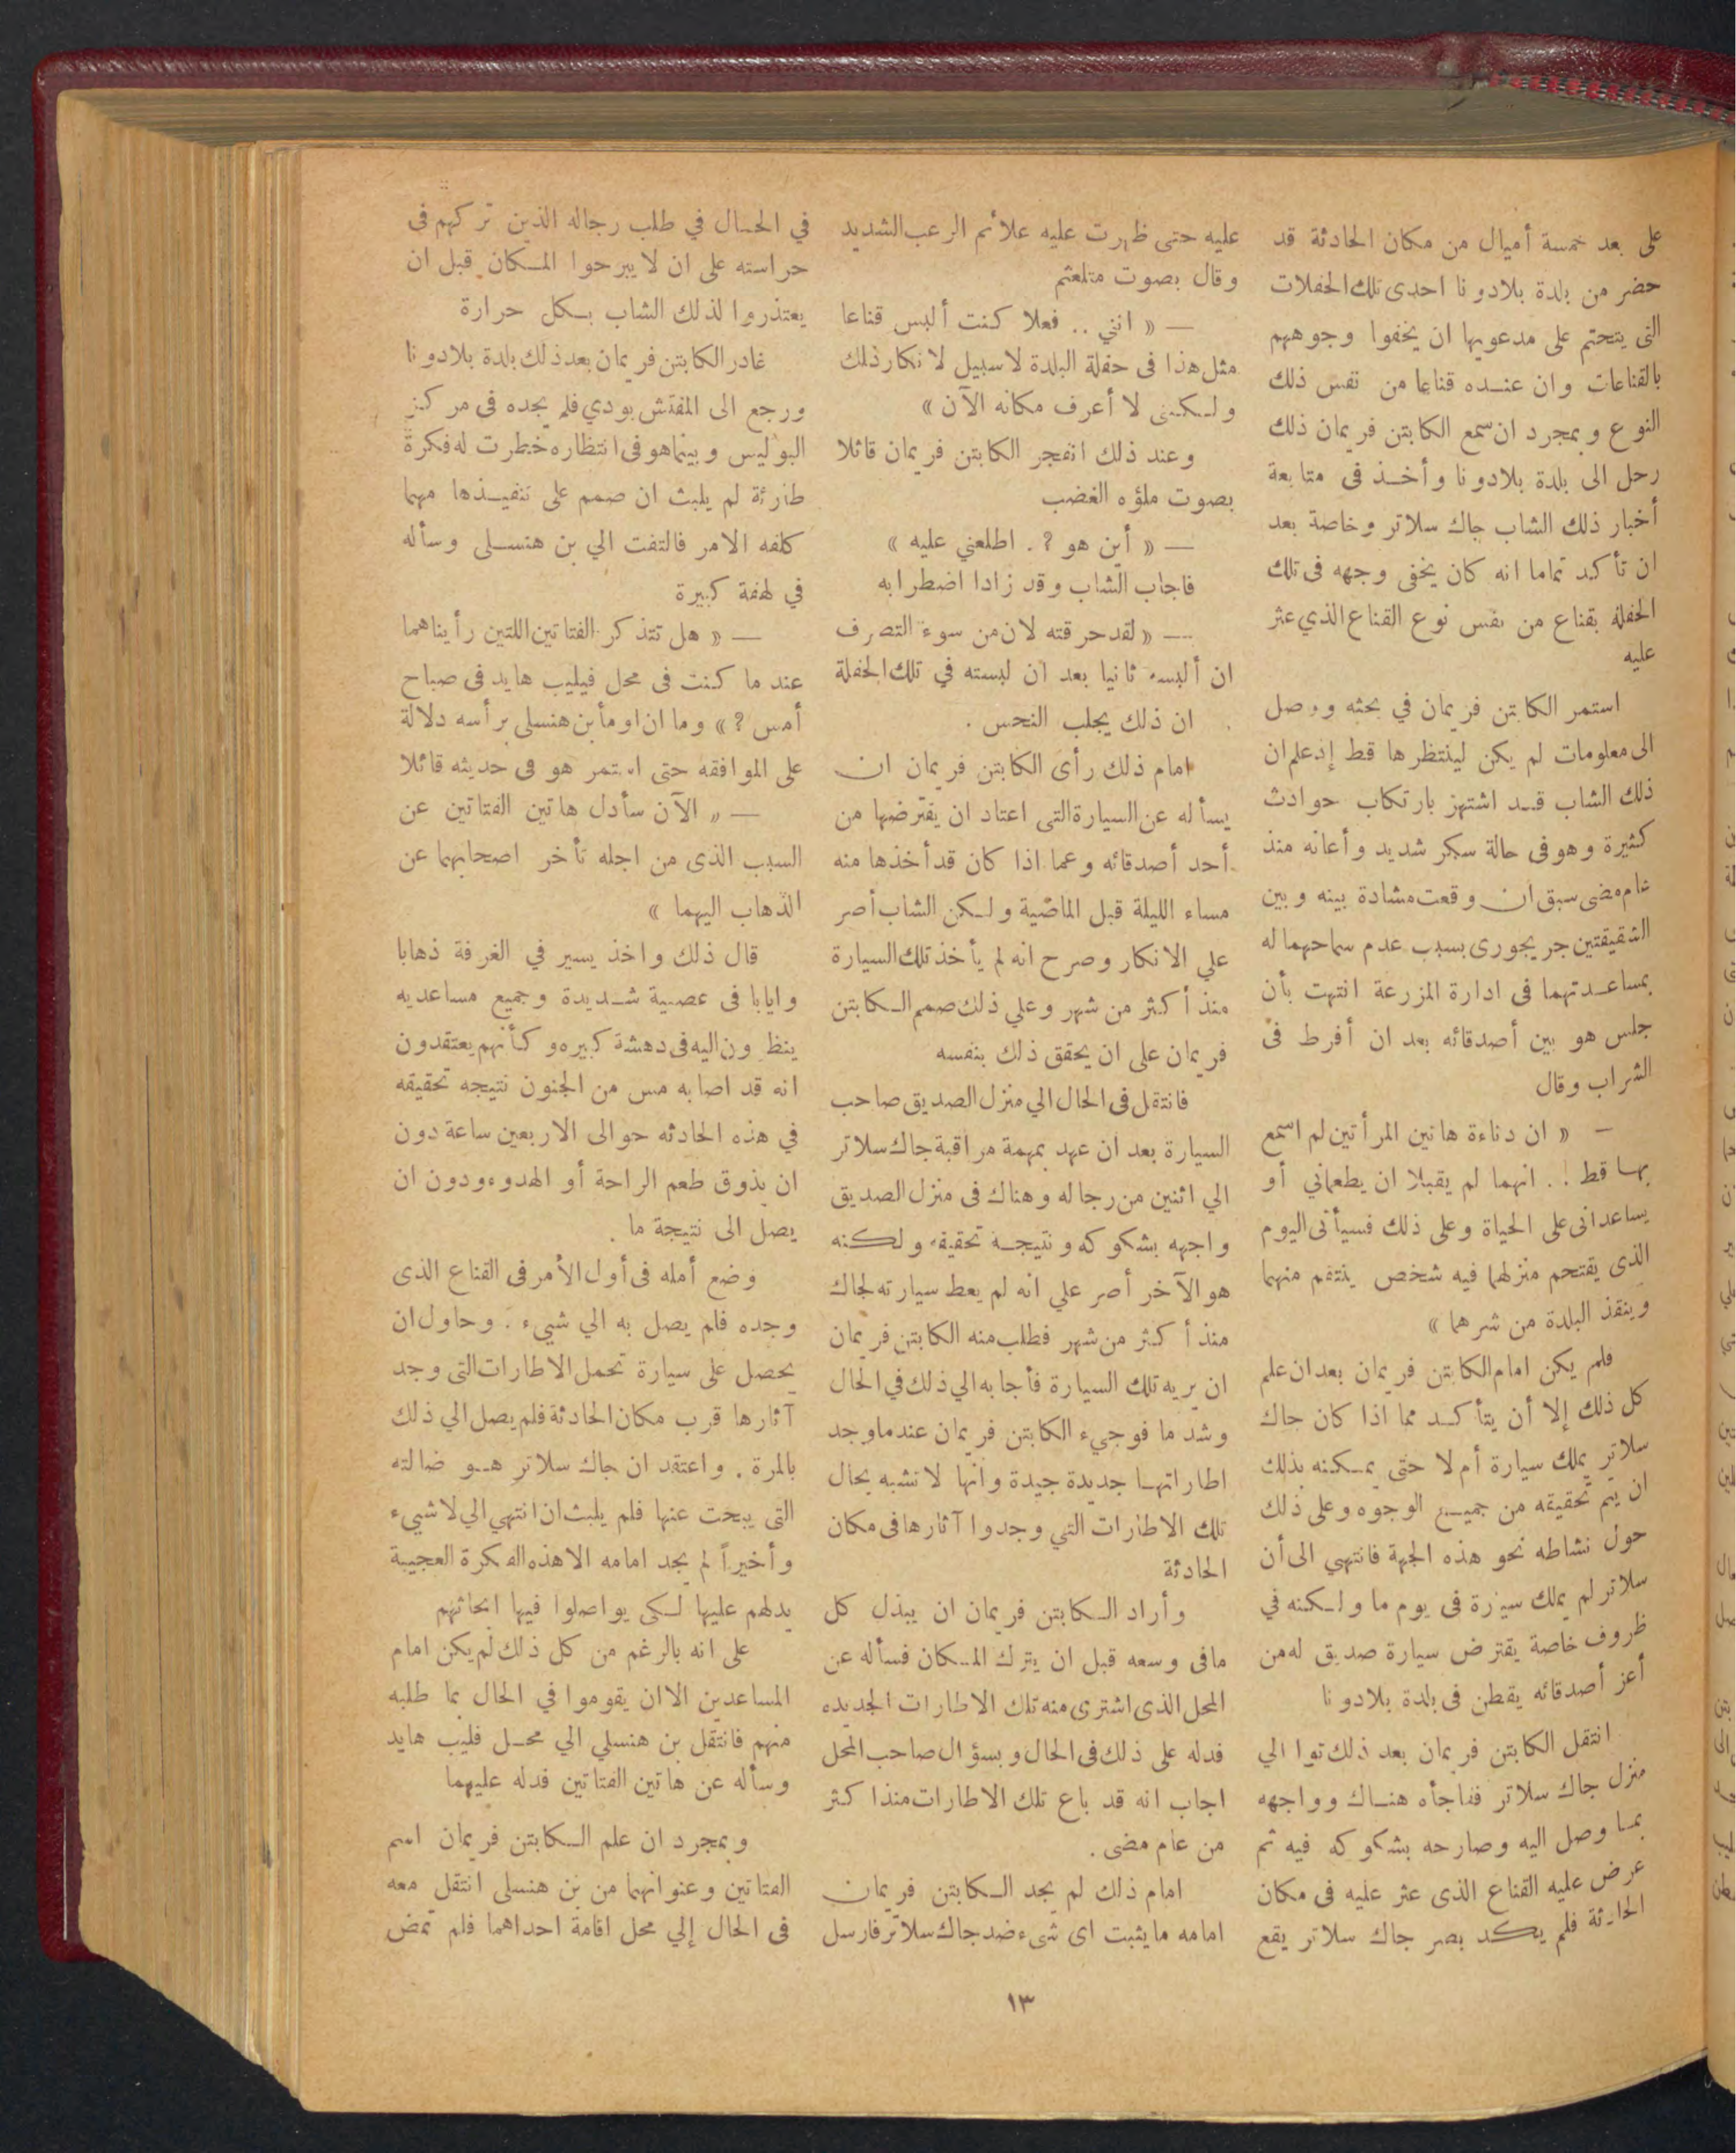 على بعد خمسة أميال من مكان الحادثة قد
حضر من بلدة بلادونا احدى تلك الحفلات
التى يتحتم على مدعويها ان يخفوا وجوههم
بالقناعات وان عنده قناعا من نفس ذلك
النوع وبمجرد ان سمع الكابتن فريمان ذلك
رحل الى بلدة بلادونا وأخذ فى متابعة
أخبار ذلك الشاب جاك سلاتر وخاصة بعد
ان تأكد تماما انه كان يخفى وجهه فى تلك
الحفلة بقناع من نفس نوع القناع الذي عثر
عليه
استمر الكابتن فريمان في بحثه ووصل
الى معلومات لم يكن لينتظرها قط إذ علم ان
ذلك الشاب قد اشتهر بارتكاب حوادث
كثيرة وهو فى حالة سكر شديد وأعانه منذ
عام مضى سبق ان وقعت مشادة بينه وبين
الشقيقتين جريجورى بسبب عدم سماحهما له
بمساعدتهما فى ادارة المزرعة انتهت بأن
جلس هو بين أصدقائه بعد ان أفرط فى
الشراب وقال
— « ان دناءة هاتين المرأتين لم اسمع
بها قط ! . انهما لم يقبلا ان يطعماني أو
يساعدانى على الحياة وعلى ذلك فسيأتى اليوم
الذى يقتحم منزلهما فيه شخص ينتقم منهما
وينقذ البلدة من شرهما »
فلم يكن امام الكابتن فريمان بعد ان علم
كل ذلك إلا أن يتأكد مما اذا كان جاك
سلاتر يملك سيارة أم لا حتى يمكنه بذلك
ان يتم تحقيقه من جميع الوجوه وعلى ذلك
حول نشاطه نحو هذه الجهة فانتهي الى أن
سلاتر لم يملك سيارة فى يوم ما ولكنه في
ظروف خاصة يقترض سيارة صديق له من
أعز أصدقائه يقطن فى بلدة بلادونا
انتقل الكابتن فريمان بعد ذلك توا الي
منزل جاك سلاتر ففاجأه هناك وواجهه
بما وصل اليه وصارحه بشكوكه فيه ثم
عرض عليه القناع الذى عثر عليه فى مكان
الحادثة فلم يكد بصر جاك سلاتر يقع
عليه حتى ظهرت عليه علائم الرعب الشديد
وقال بصوت متلعثم
— « اننى .. فعلا كنت ألبس قناعا
مثل هذا فى حفلة البلدة لا سبيل لانكار ذلك
ولكننى لا أعرف مكانه الآن »
وعند ذلك انفجر الكابتن فريمان قائلا
بصوت ملؤه الغضب
— « أين هو ? . اطلعني عليه »
فاجاب الشاب وقد زادا اضطرابه
— « لقد حرقته لان من سوء التصرف
ان ألبسه ثانيا بعد ان لبسته في تلك الحفلة
ان ذلك يجلب النحس .
امام ذلك رأى الكابتن فريمان ان
يسأله عن السيارة التى اعتاد ان يقترضها من
أحد أصدقائه وعما اذا كان قد أخذها منه
مساء الليلة قبل الماضية ولكن الشاب أصر
علي الانكار وصرح انه لم يأخذ تلك السيارة
منذ أكثر من شهر وعلي ذلك صمم الكابتن
فريمان على ان يحقق ذلك بنفسه
فانتقل فى الحال الي منزل الصديق صاحب
السيارة بعد ان عهد بمهمة مراقبة جاك سلاتر
الي اثنين من رجاله وهناك فى منزل الصديق
واجهه بشكوكه ونتيجة تحقيقه ولكنه
هو الآخر أصر علي انه لم يعط سيارته لجاك
منذ أكثر من شهر فطلب منه الكابتن فريمان
ان يريه تلك السيارة فأجابه الي ذلك في الحال
وشد ما فوجيء الكابتن فريمان عندما وجد
اطاراتها جديدة جيدة وانها لا تشبه بحال
تلك الاطارات التي وجدوا آثارها فى مكان
الحادثة
وأراد الكابتن فريمان ان يبذل كل
مافى وسعه قبل ان يترك المكان فسأله عن
المحل الذى اشترى منه تلك الاطارات الجديده
فدله على ذلك فى الحال وبسؤال صاحب المحل
اجاب انه قد باع تلك الاطارات منذ اكثر
من عام مضى .
امام ذلك لم يجد الكابتن فريمان
امامه ما يثبت اى شىء ضد جاك سلاتر فارسل
في الحال في طلب رجاله الذين تركهم فى
حراسته على ان لا يبرحوا المكان قبل ان
يعتذروا لذلك الشاب بكل حرارة
غادر الكابتن فريمان بعد ذلك بلدة بلادونا
ورجع الى المفتش بودي فلم يجده فى مركز
البوليس وبينما هو فى انتظاره خطرت له فكرة
طارئة لم يلبث ان صمم على تنفيذها مهما
كلفه الامر فالتفت الي بن هنسلى وسأله
في لهفة كبيرة
— « هل تتذكر الفتاتين اللتين رأيناهما
عند ما كنت فى محل فيليب هايد فى صباح
أمس ? » وما ان اومأ بن هنسلى برأسه دلالة
على الموافقه حتى استمر هو فى حديثه قائلا
— « الآن سأدل هاتين الفتاتين عن
السبب الذى من اجله تأخر اصحابهما عن
الذهاب اليهما »
قال ذلك واخذ يسير في الغرفة ذهابا
وايابا فى عصبية شديدة وجميع مساعديه
ينظرون اليه فى دهشة كبيره وكأنهم يعتقدون
انه قد اصابه مس من الجنون نتيجه تحقيقه
في هذه الحادثه حوالى الاربعين ساعة دون
ان يذوق طعم الراحة أو الهدوء ودون ان
يصل الى نتيجة ما .
وضع أمله فى أول الأمر فى القناع الذى
وجده فلم يصل به الي شيء . وحاول ان
يحصل على سيارة تحمل الاطارات التى وجد
آثارها قرب مكان الحادثة فلم يصل الي ذلك
بالمرة . واعتقد ان جاك سلاتر هو ضالته
التى يبحث عنها فلم يلبث ان انتهي الي لا شيء
وأخيراً لم يجد امامه الا هذه الفكرة العجيبة
يدلهم عليها لكى يواصلوا فيها ابحاثهم
على انه بالرغم من كل ذلك لم يكن امام
المساعدين الا ان يقوموا في الحال بما طلبه
منهم فانتقل بن هنسلي الي محل فليب هايد
وسأله عن هاتين الفتاتين فدله عليهما
وبمجرد ان علم الكابتن فريمان اسم
الفتاتين وعنوانهما من بن هنسلى انتقل معه
فى الحال إلي محل اقامة احداهما فلم تمض
١٣